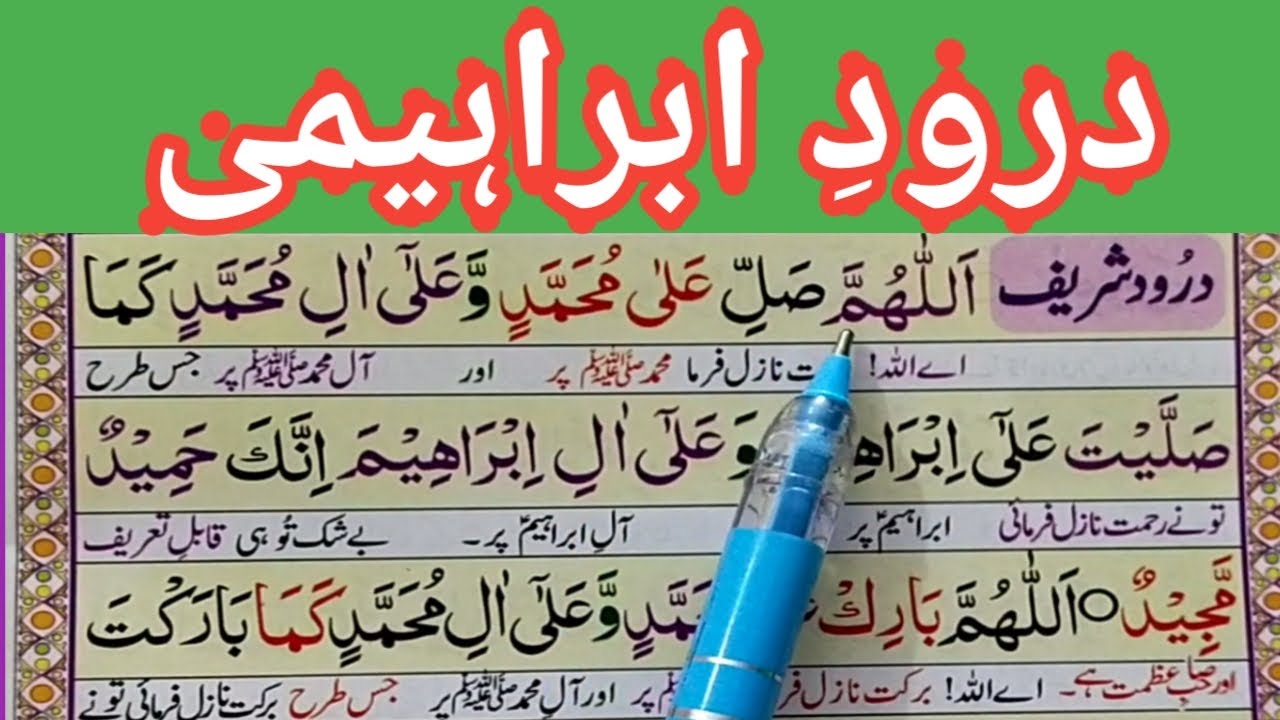 درودِ ابراہیمی
درُود شریف اَللّٰهُمَّ صَلِّ عَلٰى مُحَمَّدٍ وَّعَلٰٓى اٰلِ مُحَمَّدٍ كَمَا
اے اللہ! ت نازل فرما محمد ﷺ پر اور آل محمد ﷺ پر جس طرح
صَلَّيْتَ عَلٰٓى اِبْرَاهِ وَعَلٰٓى اٰلِ اِبْرَاهِيْمَ اِنَّكَ حَمِيْدٌ
تونے رحمت نازل فرمائی ابراہیمؑ پر آلِ ابراہیمؑ پر۔ بے شک تُو ہی قابلِ تعریف
مَّجِيْدٌ ○ اَللّٰهُمَّ بَارِكْ حَمَّدٍ وَّعَلٰٓى اٰلِ مُحَمَّدٍ كَمَا بَارَكْتَ
اور صاحبِ عظمت ہے۔ اے اللہ! برکت نازل فر ﷺ پر اور آل محمد ﷺ پر جس طرح برکت نازل فرمائی تونے